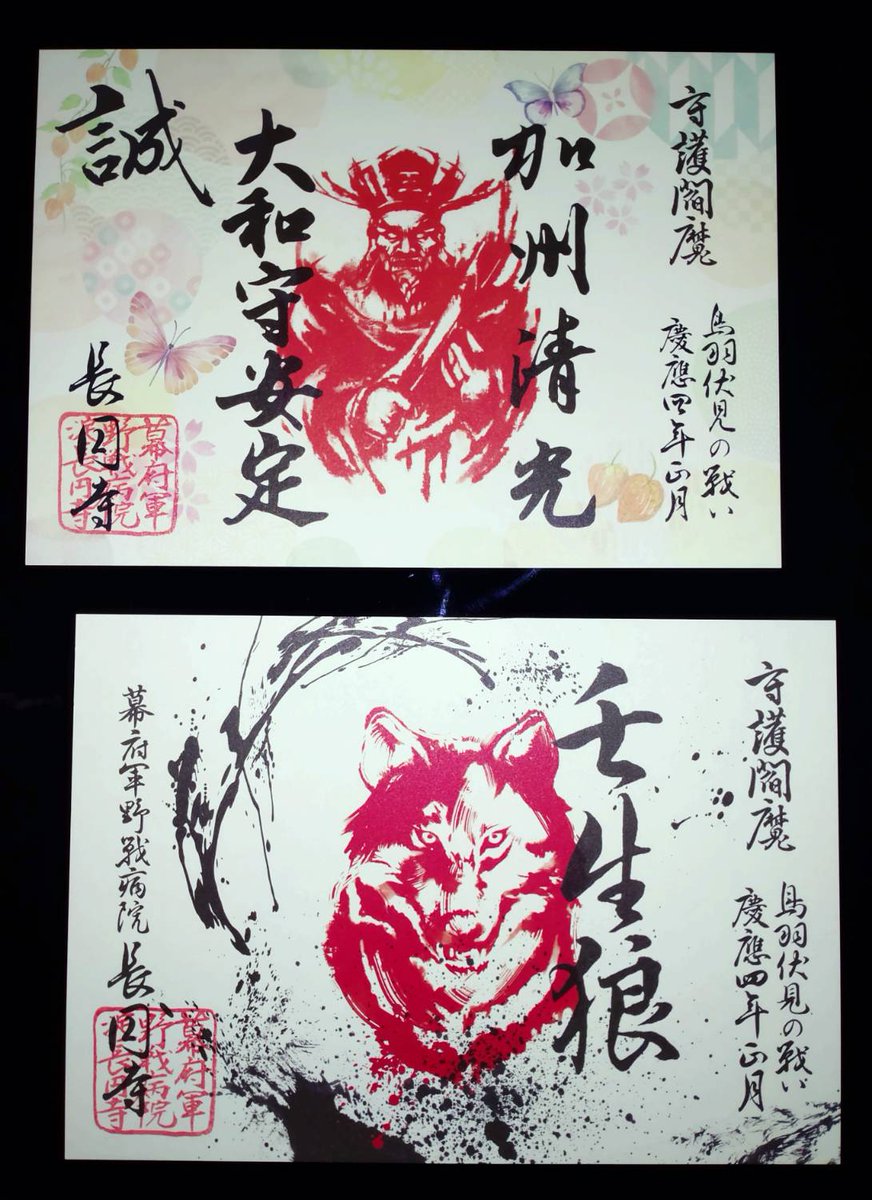 守護閻魔
鳥羽伏見の戦い
慶應四年正月
加州清光
大和守安定
誠
長円寺
幕府軍
野戦病院
淀長円寺
守護閻魔
鳥羽伏見の戦い
慶應四年正月
壬生狼
幕府軍野戦病院
長円寺
幕府軍
野戦病院
淀長円寺